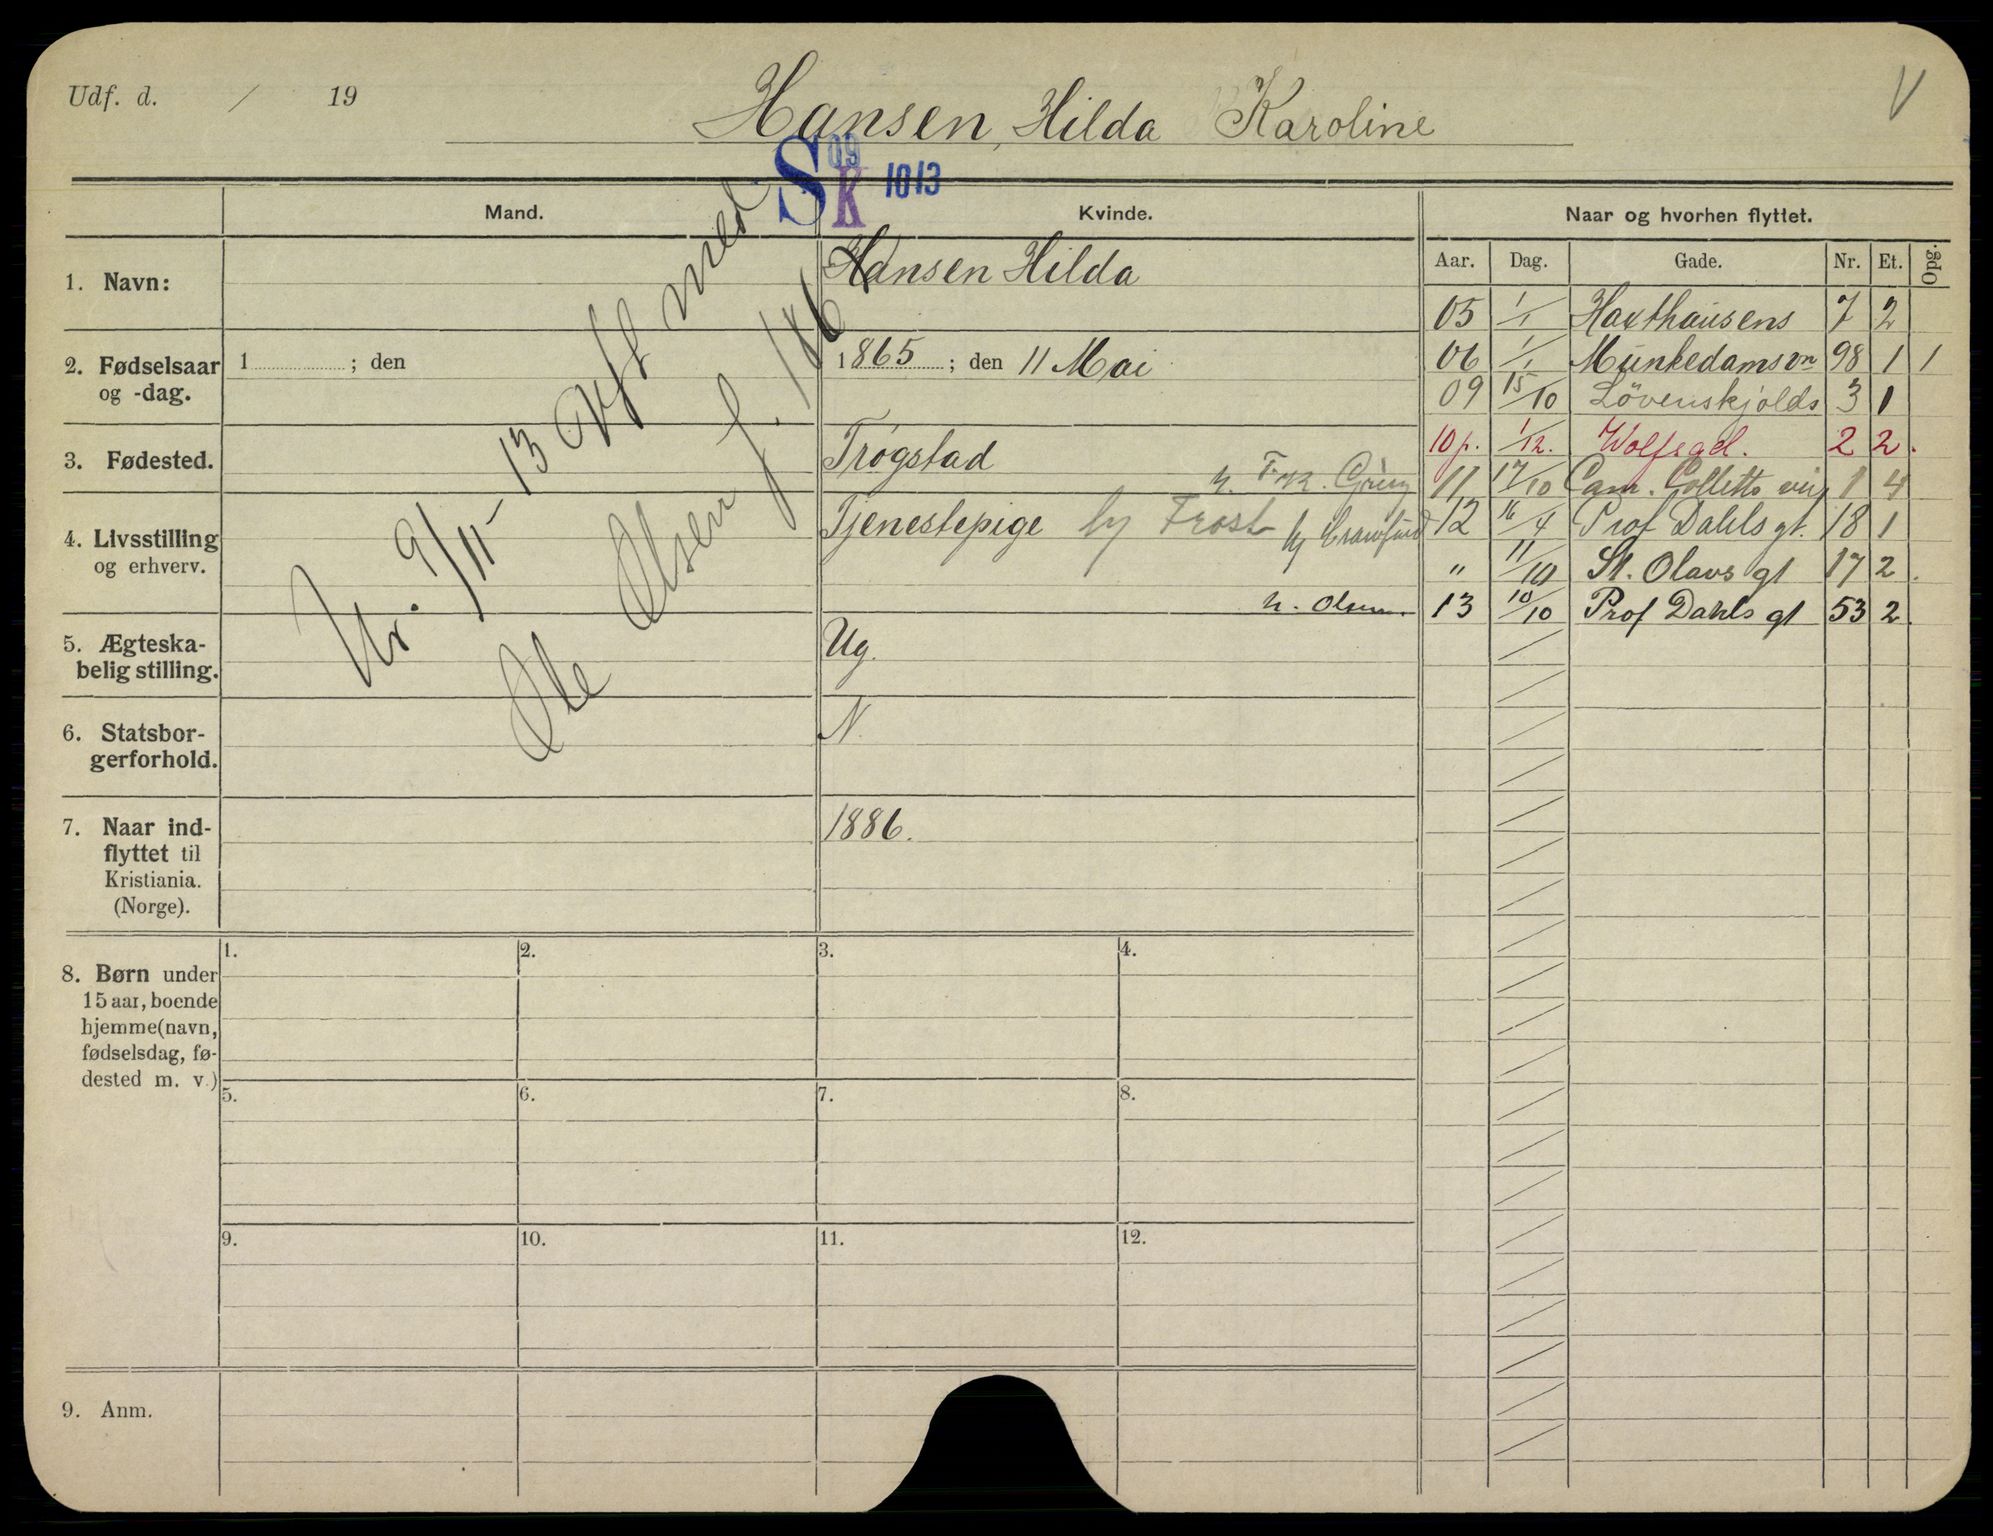 Udf. d. / 19
Hansen, Hilda Karoline
V
S 09 K 1013
Mand.
Kvinde.
Naar og hvorhen flyttet.
Aar. Dag. Gade. Nr. Et. Opg.
1. Navn:
Hansen Hilda
2. Fødselsaar og -dag.
1 ; den
1865 ; den 11 Mai
3. Fødested.
Trøgstad
4. Livsstilling og erhverv.
h. Frk.
Tjenestepige hj Frost hj Crawfurd
h. Olsen.
5. Ægteska-
belig stilling.
Ug.
6. Statsbor-
gerforhold.
N.
7. Naar ind-
flyttet til
Kristiania.
(Norge).
1886.
9/11 - 13 med
Ole Olsen f. 186
05 1/1 Haxthausens 7 2
06 1/1 Munkedamsvn 98 1 1
09 15/10 Løvenskjolds 3 1
10 p. 1/12. Wolfsgd. 2 2.
11 17/10 Cam. Colletts vei 1 4
12 16/4 Prof Dahls gt. 18 1
" 11/10 St. Olavs gt 17 2.
13 10/10 Prof Dahls gt 53 2.
8. Børn under
15 aar, boende
hjemme (navn,
fødselsdag, fø-
dested m. v.)
1. 2. 3. 4.
5. 6. 7. 8.
9. 10. 11. 12.
9. Anm.